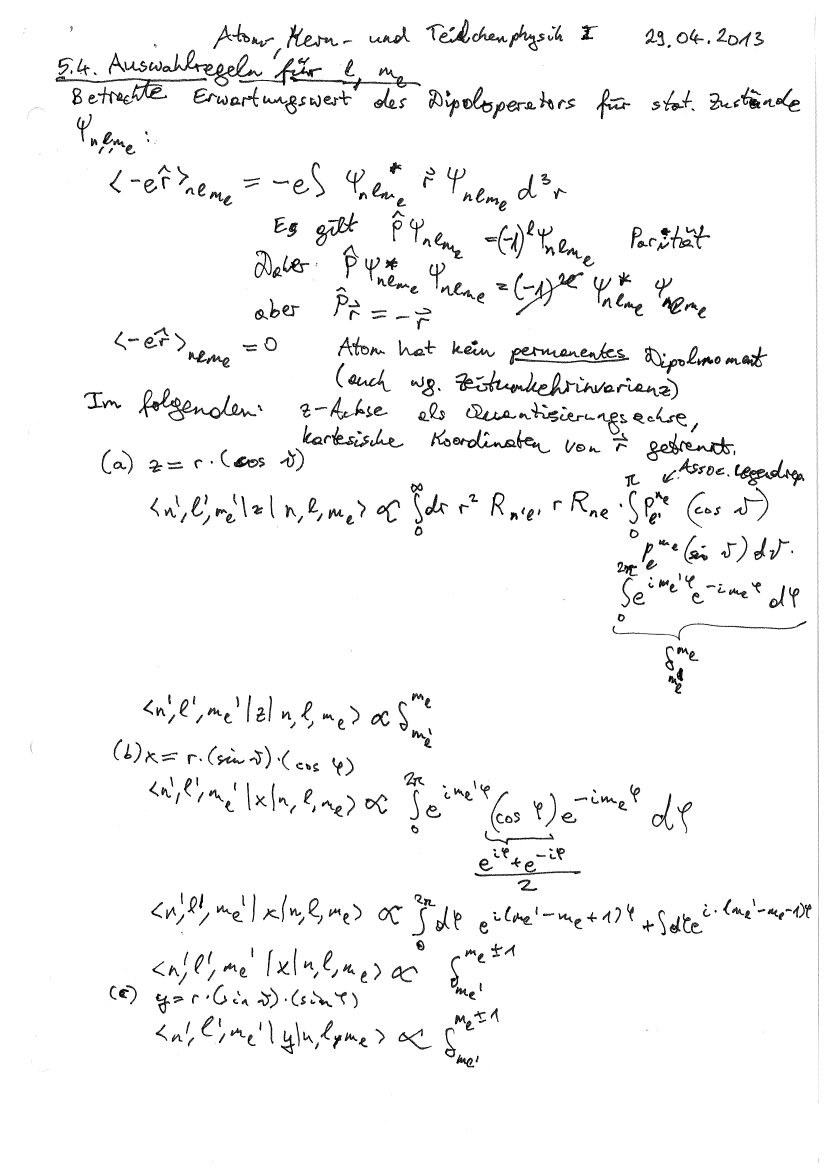 Atom, Kern- und Teilchenphysik I 29.04.2013
5.4. Auswahlregeln für l, m_l
Betrachte Erwartungswert des Dipoloperators für stat. Zustände
Ψ_{n,l,m_l}:
<-e r̂>_{nlm_l} = -e∫ Ψ*_{nlm_l} r⃗ Ψ_{nlm_l} d³r
Es gilt P̂Ψ_{nlm_l} = (-1)^l Ψ_{nlm_l} Parität
Daher P̂Ψ*_{nlm_l} Ψ_{nlm_l} = (-1)^{2l} Ψ*_{nlm_l} Ψ_{nlm_l}
aber P̂r⃗ = -r⃗
<-e r̂>_{nlm_l} = 0 Atom hat kein permanentes Dipolmoment
(auch wg. Zeitumkehrinvarianz)
Im folgenden: z-Achse als Quantisierungsachse,
kartesische Koordinaten von r⃗ getrennt.
(a) z = r·(cos ϑ)
↙Assoc. Legendrep.
<n',l',m_l'|z|n,l,m_l> ∝ ∫_0^∞ dr r² R_{n'l'} r R_{nl} · ∫_0^π P_{l'}^{m_l} (cos ϑ)
P_l^{m_l} (sin ϑ) dϑ·
∫_0^{2π} e^{im_l'φ} e^{-im_lφ} dφ
δ_{m_l'}^{m_l}
<n',l',m_l'|z|n,l,m_l> ∝ δ_{m_l'}^{m_l}
(b) x = r·(sin ϑ)·(cos φ)
<n',l',m_l'|x|n,l,m_l> ∝ ∫_0^{2π} e^{im_l'φ} (cos φ) e^{-im_lφ} dφ
(e^{iφ}+e^{-iφ})/2
<n',l',m_l'|x|n,l,m_l> ∝ ∫_0^{2π} dφ e^{i(m_l'-m_l+1)φ} + ∫dφ e^{i·(m_l'-m_l-1)φ}
<n',l',m_l'|x|n,l,m_l> ∝ δ_{m_l'}^{m_l±1}
(c) y = r·(sin ϑ)·(sin φ)
<n',l',m_l'|y|n,l,m_l> ∝ δ_{m_l'}^{m_l±1}